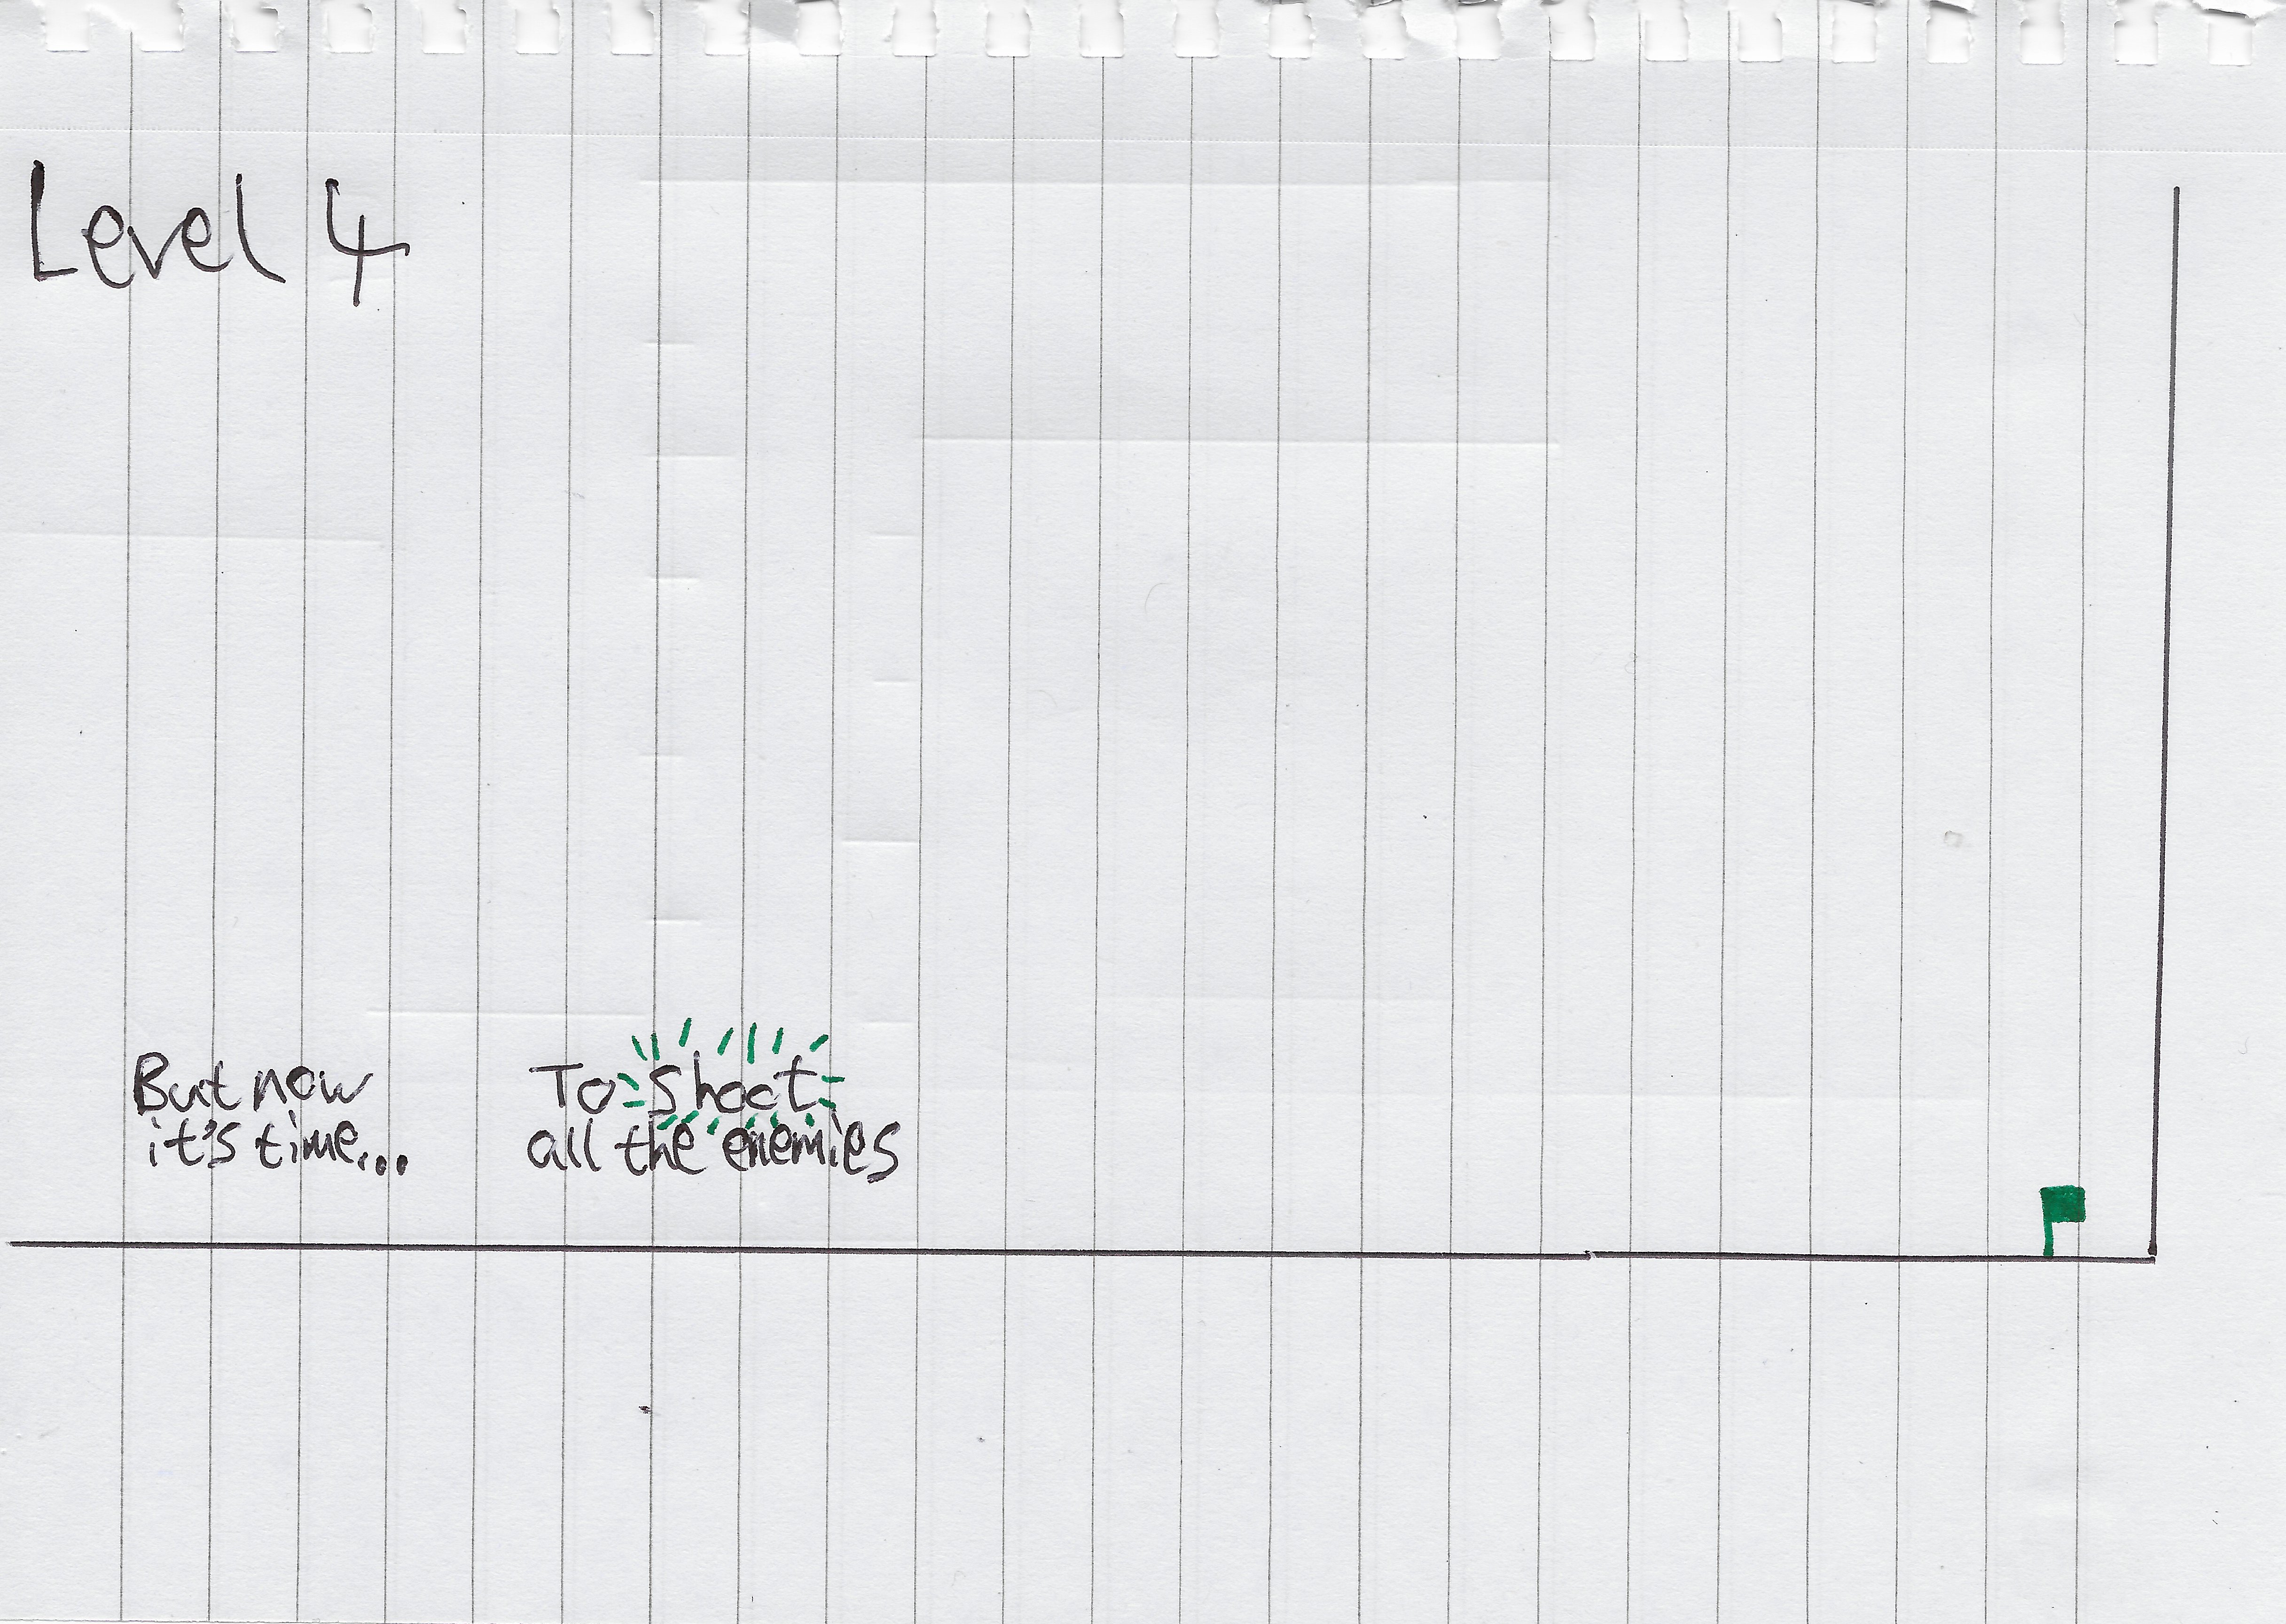 Level 4
But now
it's time...
To shoot
all the enemies